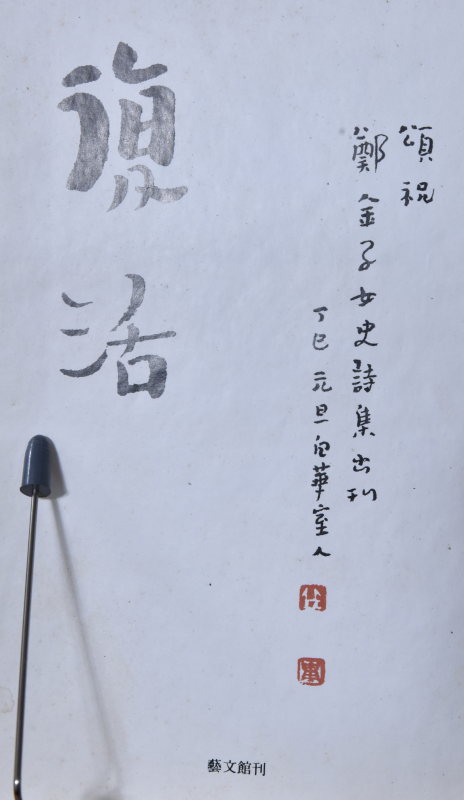 頌祝
鄭金子女史詩集出刊
丁巳元旦白華室人
復活
藝文館刊